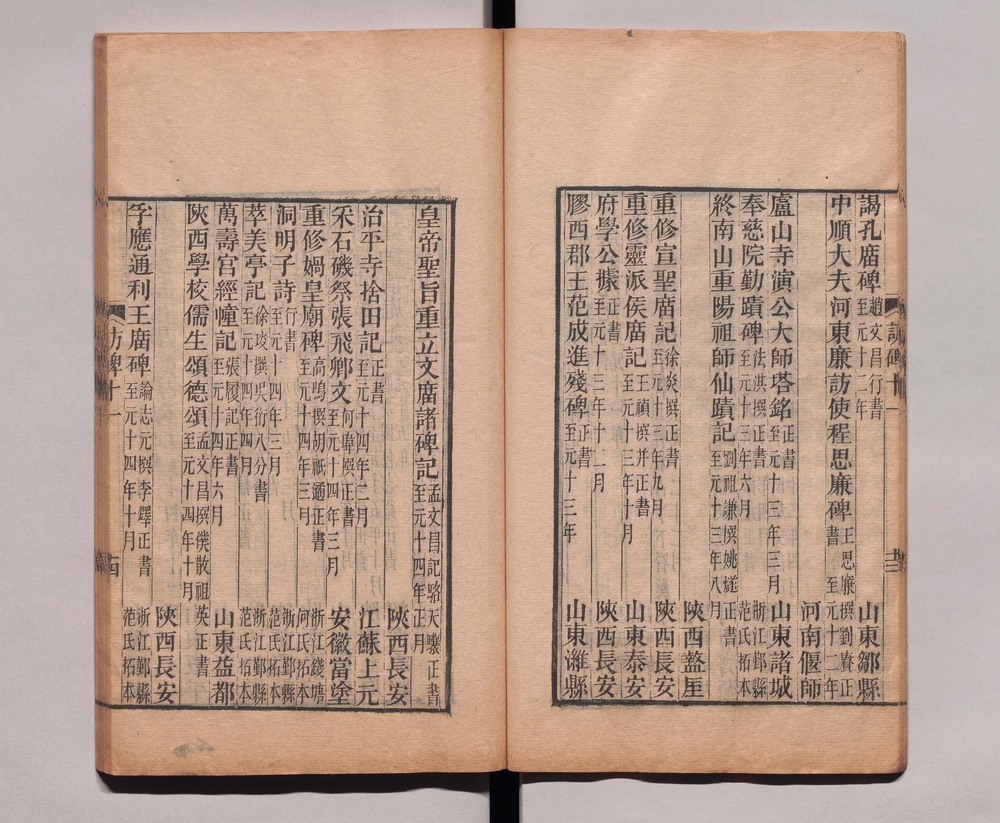 謁孔廟碑 趙文昌行書 至元十二年 山東鄒縣
中順大夫河東廉訪使程思廉碑 王思廉撰劉賡正書 至元十二年
河南偃師
盧山寺演公大師塔銘 正書 至元十三年三月 山東諸城
奉慈院勤蹟碑 法洪撰正書 至元十三年六月 浙江鄞縣范氏拓本
終南山重陽祖師仙蹟記 劉祖謙撰姚璲正書 至元十三年八月
陝西盩厔
重修宣聖廟記 徐炎撰正書 至元十三年九月 陝西長安
重修靈派侯廟記 王禎撰并正書 至元十三年十月 山東泰安
府學公據 正書 至元十三年十二月 陝西長安
膠西郡王范成進殘碑 至元十三年 山東濰縣
皇帝聖旨重立文廟諸碑記 孟文昌記駱天驤正書 至元十四年正月
陝西長安
治平寺捨田記 正書 至元十四年二月 江蘇上元
采石磯祭張飛卿文 何瑋撰正書 至元十四年三月 安徽當塗
重修媧皇廟碑 高鳴撰胡祗遹正書 至元十四年三月 浙江錢塘何氏拓本
洞明子詩 行書 至元十四年三月 浙江鄞縣范氏拓本
萃美亭記 徐琰撰吳衍八分書 至元十四年四月 浙江鄞縣范氏拓本
萬壽宮經幢記 張履記正書 至元十四年六月 山東益都
陝西學校儒生頌德頌 孟文昌撰僕散祖英正書 至元十四年十月
陝西長安
孚應通利王廟碑 論志元撰李鐸正書 至元十四年十月 浙江鄞縣范氏拓本
訪碑十一 十四